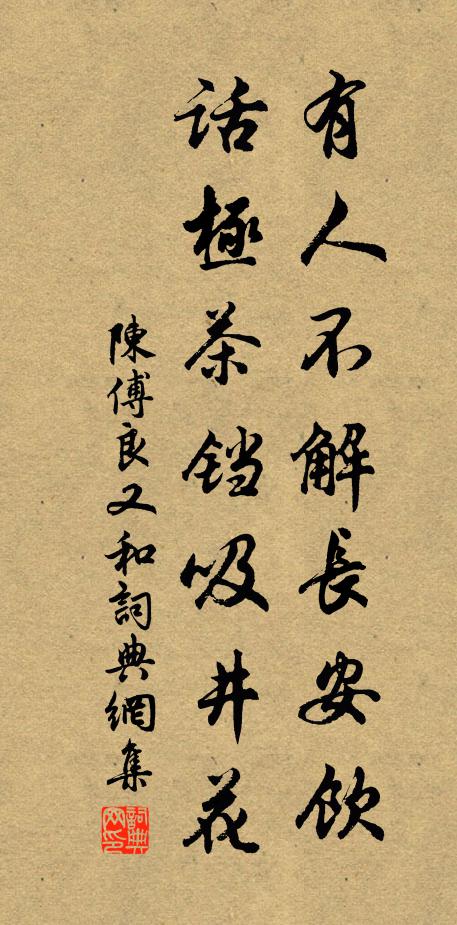 有人不解長安飲
話極茶铛吸井花
陳傅良又和詞典網集
詞典網印